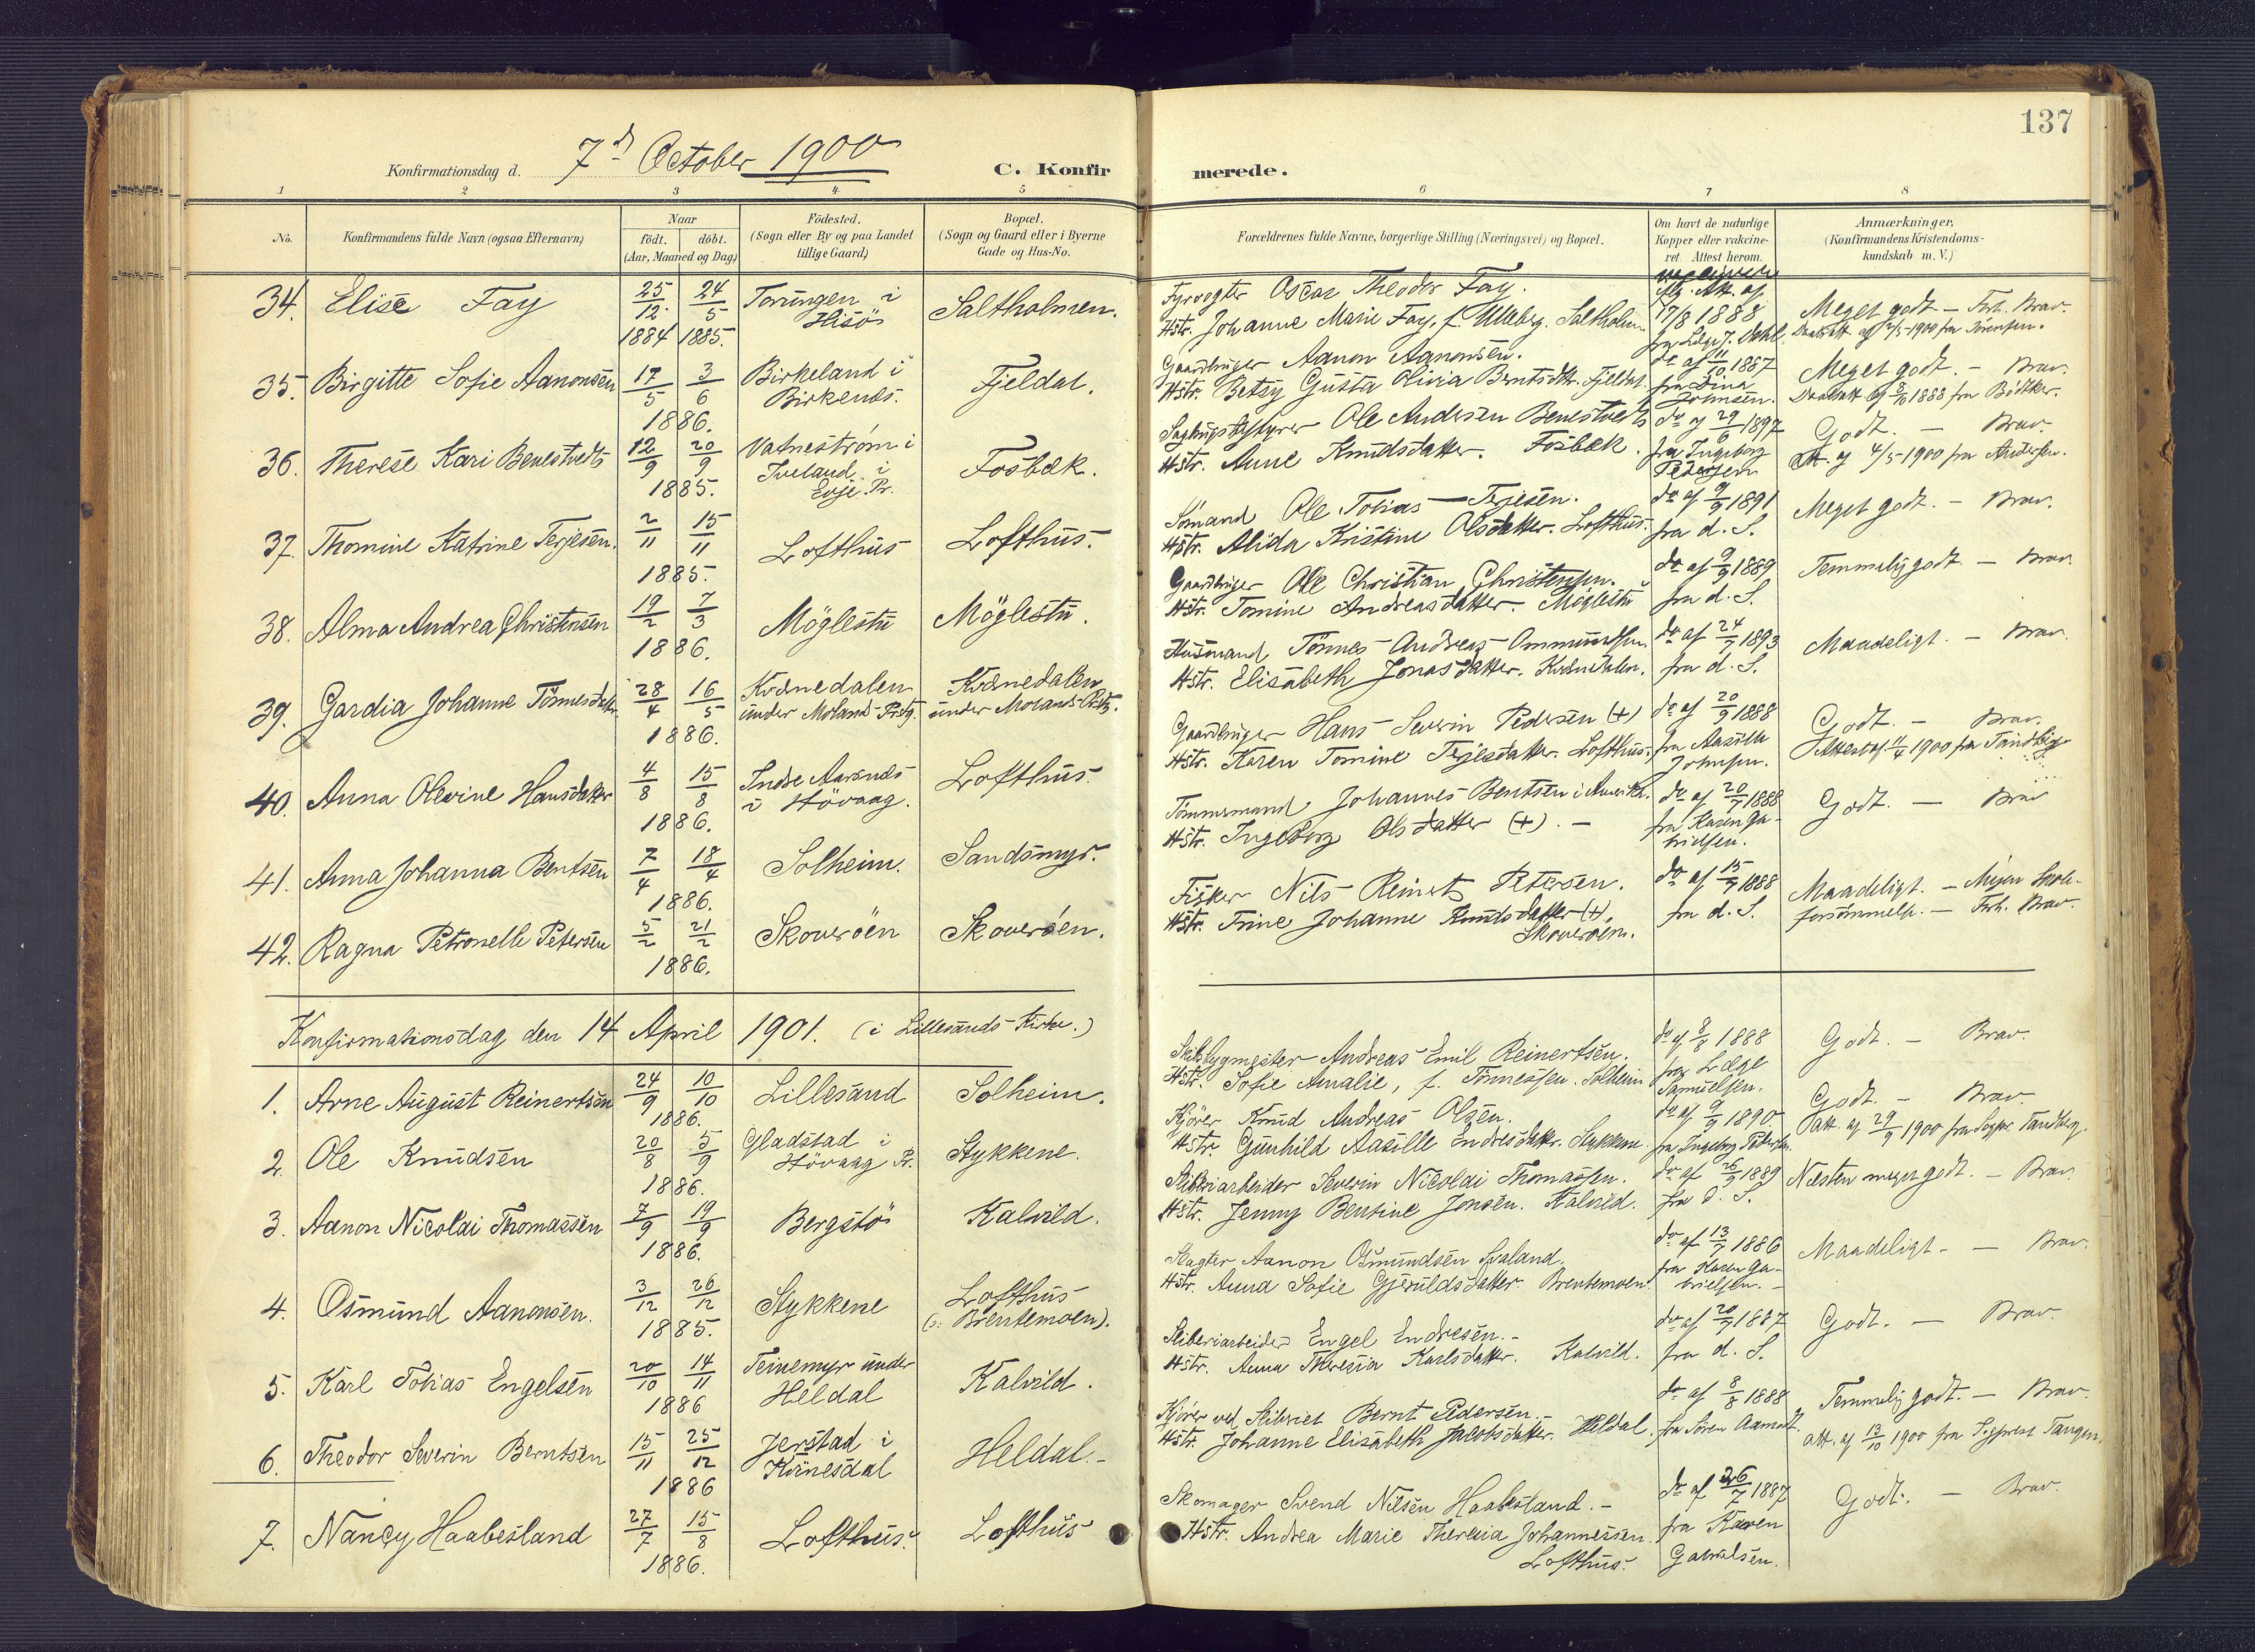 137
Konfirmationsdag d. 7d October 1900
C. Konfirmerede.
1 2 3 4 5 6 7 8
No. Konfirmandens fulde Navn (ogsaa Efternavn) Naar födt. döbt. (Aar, Maaned og Dag) Födested. (Sogn eller By og paa Landet tillige Gaard) Bopæl. (Sogn og Gaard eller i Byerne Gade og Hus-No.
Forældrenes fulde Navne, borgerlige Stilling (Næringsvei) og Bopæl. Om havt de naturlige Kopper eller vakcineret. Attest herom. Anmærkninger, (Konfirmandens Kristendomskundskab m. V.)
34. Elise Fay 25/12 1884 24/5 1885. Torungen i Hisö Saltholmen.
Fyrvogter Oscar Theodor Fay.
Hstr. Johanne Marie Fay, f. Ulleberg. Saltholmen
17/8 1888
Meget godt – Forh. Brav.
35. Birgitte Sofie Aanonsen 17/5 3/6 1886. Birkeland i Birkenæs. Fjeldal.
Gaardbruger Aanon Aanonsen.
Hstr. Betzy Gusta Olivia Berntsdtr. Fjeldal.
do af 11/10 1887 fra Lina Johnsen.
Meget godt. – Brav.
Daabsatt. af 8/10 1888 fra Bödtker.
36. Therese Kari Benestvedt 12/9 20/9 1885. Vatneström i Iveland i Evje Pr. Fosbæk.
Sagbrugsbestyrer Ole Andersen Benestvedt
Hstr. Anne Knudsdatter. Fosbæk.
do af 29/6 1897 fra Ingeborg Pedersen
Godt. – Brav.
Att. af 4/5 1900 fra Andersen.
37. Thomine Katrine Terjesen. 2/11 15/11 1885. Lofthus Lofthus.
Sömand Ole Tobias Terjesen.
Hstr. Alida Kristine Olsdatter. Lofthus.
do af 9/9 1891 fra d. S.
Meget godt. – Brav.
38. Alma Andrea Christensen 19/2 7/3 1886. Möglestu Möglestu.
Gaardbruger Ole Christian Christensen.
Hstr. Tomine Andreasdatter. Möglestu
do af 9/9 1889 fra d. S.
Temmelig godt. – Brav.
39. Gardia Johanne Tönnesdatter. 28/4 16/5 1886. Kvænedalen under Moland Prstg. Kvænedalen under Molands Prstg.
Husmand Tönnes Andreas Ommundsen.
Hstr. Elisabeth Jonasdatter. Kvænedalen.
do af 24/7 1893 fra d. S.
Maadeligt. – Brav.
40. Anna Olevine Hansdatter 4/8 15/8 1886. Indre Aarsnæs i Hövaag. Lofthus
Gaardbruger Hans Severin Pedersen (+)
Hstr. Karen Tomine Terjesdatter. Lofthus.
do af 20/9 1888 fra Aasille Johnsen.
Godt. – Brav.
Attest af 11/4 1900 fra Tandberg
41. Anna Johanna Bentsen 7/4 18/4 1886. Solheim. Sandsmyr.
Tömmermand Johannes Bentsen i Amerika.
Hstr. Ingeborg Olsdatter (+). –
do af 20/7 1888 fra Karen Gabrielsen.
Godt. – Brav
42. Ragna Petronelle Petersen 5/2 21/2 1886. Skoveröen Skoveröen.
Fisker Nils Reinert Petersen.
Hstr. Trine Johanne Knudsdatter (+). Skoveröen.
do af 15/9 1888 fra d. S.
Maadeligt. – Megen Skoleforsömmelse. – Forh. Brav.
Konfirmationsdag den 14 April 1901. (i Lillesands Kirke.)
1. Arne August Reinertsen 24/9 10/10 1886. Lillesand Solheim.
Skibsbygmester Andreas Emil Reinertsen.
Hstr. Sofie Amalie, f. Tönnessen. Solheim
do af 8/8 1888 fra Læge Samuelsen.
Godt – Brav.
2. Ole Knudsen 20/8 5/9 1886. Gladstad i Hövaag Pr. Stykkene.
Kjörer Knud Andreas Olsen.
Hstr. Gunhild Aasille Endresdatter. Stykkene
do af 9/9 1890. fra Ingeborg Pedersen.
Godt. – Brav.
Att. af 29/9 1900 fra Sogpr. Tandberg.
3. Aanon Nicolai Thomassen 7/9 19/9 1886. Bergstö Kalvild.
Sliberiarbeider Severin Nicolai Thomassen.
Hstr. Jenny Bentine Jonsen. Kalvild.
do af 26/9 1889 fra d. S.
Næsten meget godt. – Brav.
4. Osmund Aanonsen. 3/12 26/12 1885. Stykkene Lofthus (o: Brentemoen).
Slagter Aanon Osmundsen Svaland.
Hstr. Anna Sofie Gjeruldsdatter Brentemoen
do af 13/7 1886 fra Karen Gabrielsen. –
Maadeligt. – Brav.
5. Karl Tobias Engelsen 20/10 14/11 1886 Teinemyr under Heldal Kalvild.
Sliberiarbeider Engel Endresen. –
Hstr. Anna Theresia Karlsdatter. Kalvild.
do af 20/7 1887 fra d. S.
Godt. – Brav.
6. Theodor Severin Berntsen 15/11 25/12 1886 Jerstad i Kvinesdal Heldal. –
Kjörer ved Sliberiet Bernt Pedersen. –
Hstr. Johanne Elisabeth Jacobsdatter. Heldal.
do af 8/8 1888 fra Sören Aamodt.
Temmelig godt. – Brav.
Att. af 13/10 1900 fra Sogprest Tangen.
7. Nancy Haabesland 27/7 15/8 1886. Lofthus. Lofthus
Skomager Svend Nilsen Haabesland. –
Hstr. Andrea Marie Theresia Johannessen. Lofthus.
do af 26/7 1887 fra Karen Gabrielsen.
Godt. – Brav.